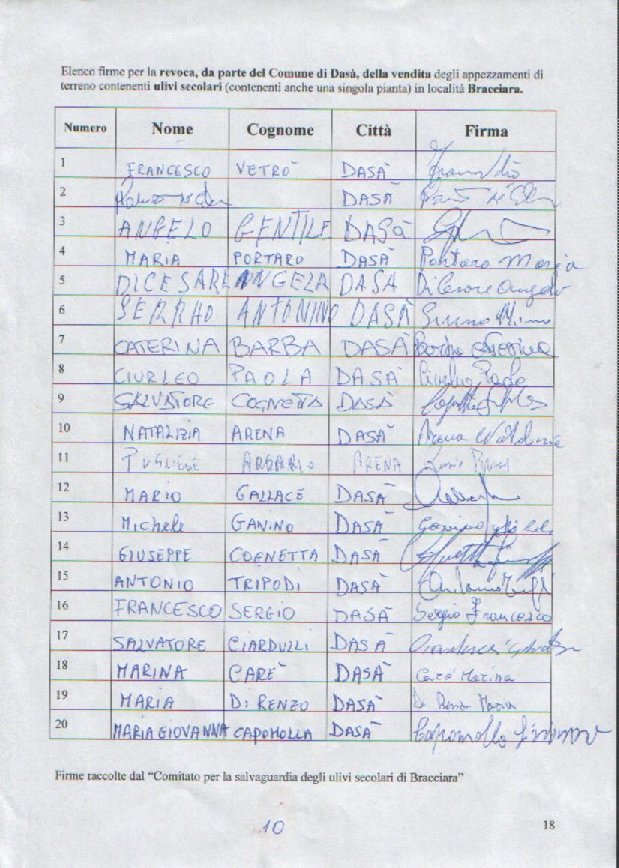 Elenco firme per la revoca, da parte del Comune di Dasà, della vendita degli appezzamenti di
terreno contenenti ulivi secolari (contenenti anche una singola pianta) in località Bracciara.
Numero Nome Cognome Città Firma
1 FRANCESCO VETRÒ DASÀ
2 DASÀ
3 ANGELO GENTILE DASÀ
4 MARIA PORTARO DASÀ Portaro Maria
5 DICESARE ANGELA DASÀ Di Cesare Angela
6 SERRAO ANTONINO DASÀ
7 CATERINA BARBA DASÀ Barba Caterina
8 CIURLEO PAOLA DASÀ Ciurleo Paola
9 SALVATORE COGNETTA DASÀ
10 NATALIZIA ARENA DASÀ Arena
11 PUGLIESE ARENA
12 MARIO GALLACE DASÀ
13 Michele GANINO DASÀ
14 GIUSEPPE COGNETTA DASÀ
15 ANTONIO TRIPODI DASÀ
16 FRANCESCO SERGIO DASÀ Sergio Francesco
17 SALVATORE CIARDULLI DASÀ
18 MARINA CARÈ DASÀ Carè Marina
19 MARIA DI RENZO DASÀ Di Renzo Maria
20 MARIA GIOVANNA CAPOMOLLA DASÀ Capomolla
Firme raccolte dal “Comitato per la salvaguardia degli ulivi secolari di Bracciara”
10
18